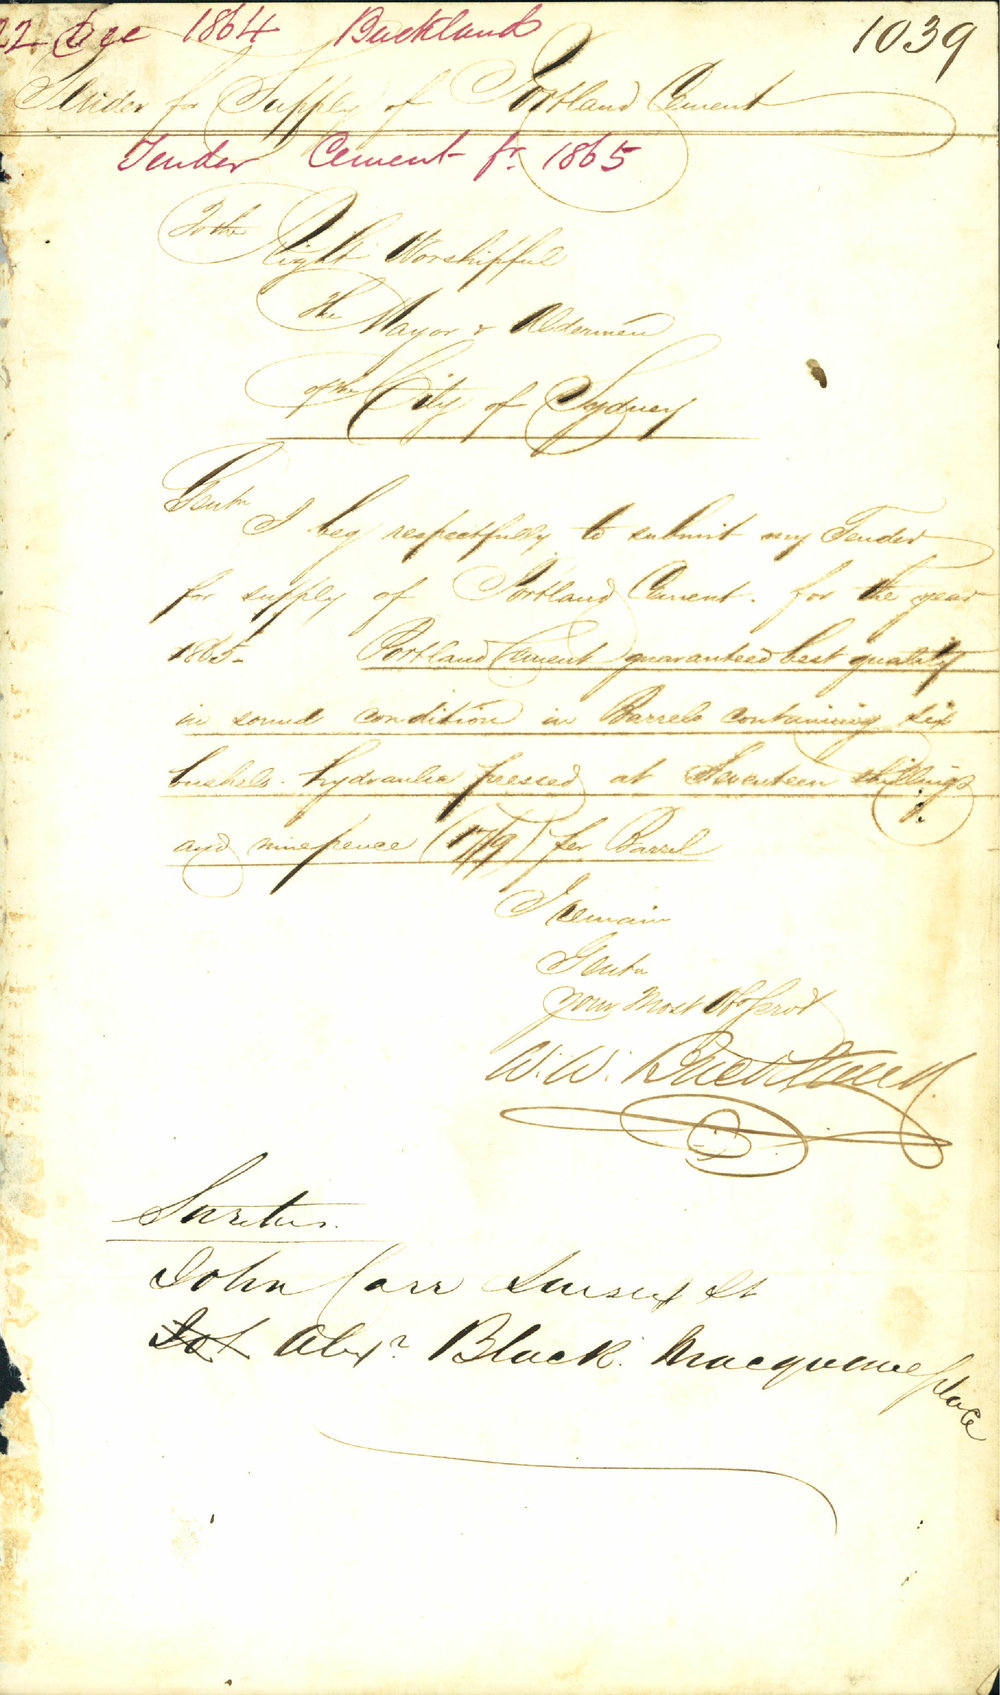 22 Dec 1864 Buckland
1039
Tender for Supply of Portland Cement
Tender Cement fr. 1865
To the Right Worshipful
The Mayor & Aldermen
of the City of Sydney
Gentn
I beg respectfully to submit my Tender
for supply of Portland Cement. for the year
1865- Portland Cement guaranteed best quality
in sound condition in Barrels containing six
bushels. hydraulic pressed at Seventeen shillings
and ninepence (17/9) per Barrel
I remain
Gentn
your most Ob Servt
W. W. Buckland.
Sureties.
John Carr Sussex St
Alexr. Black. Macquarie place